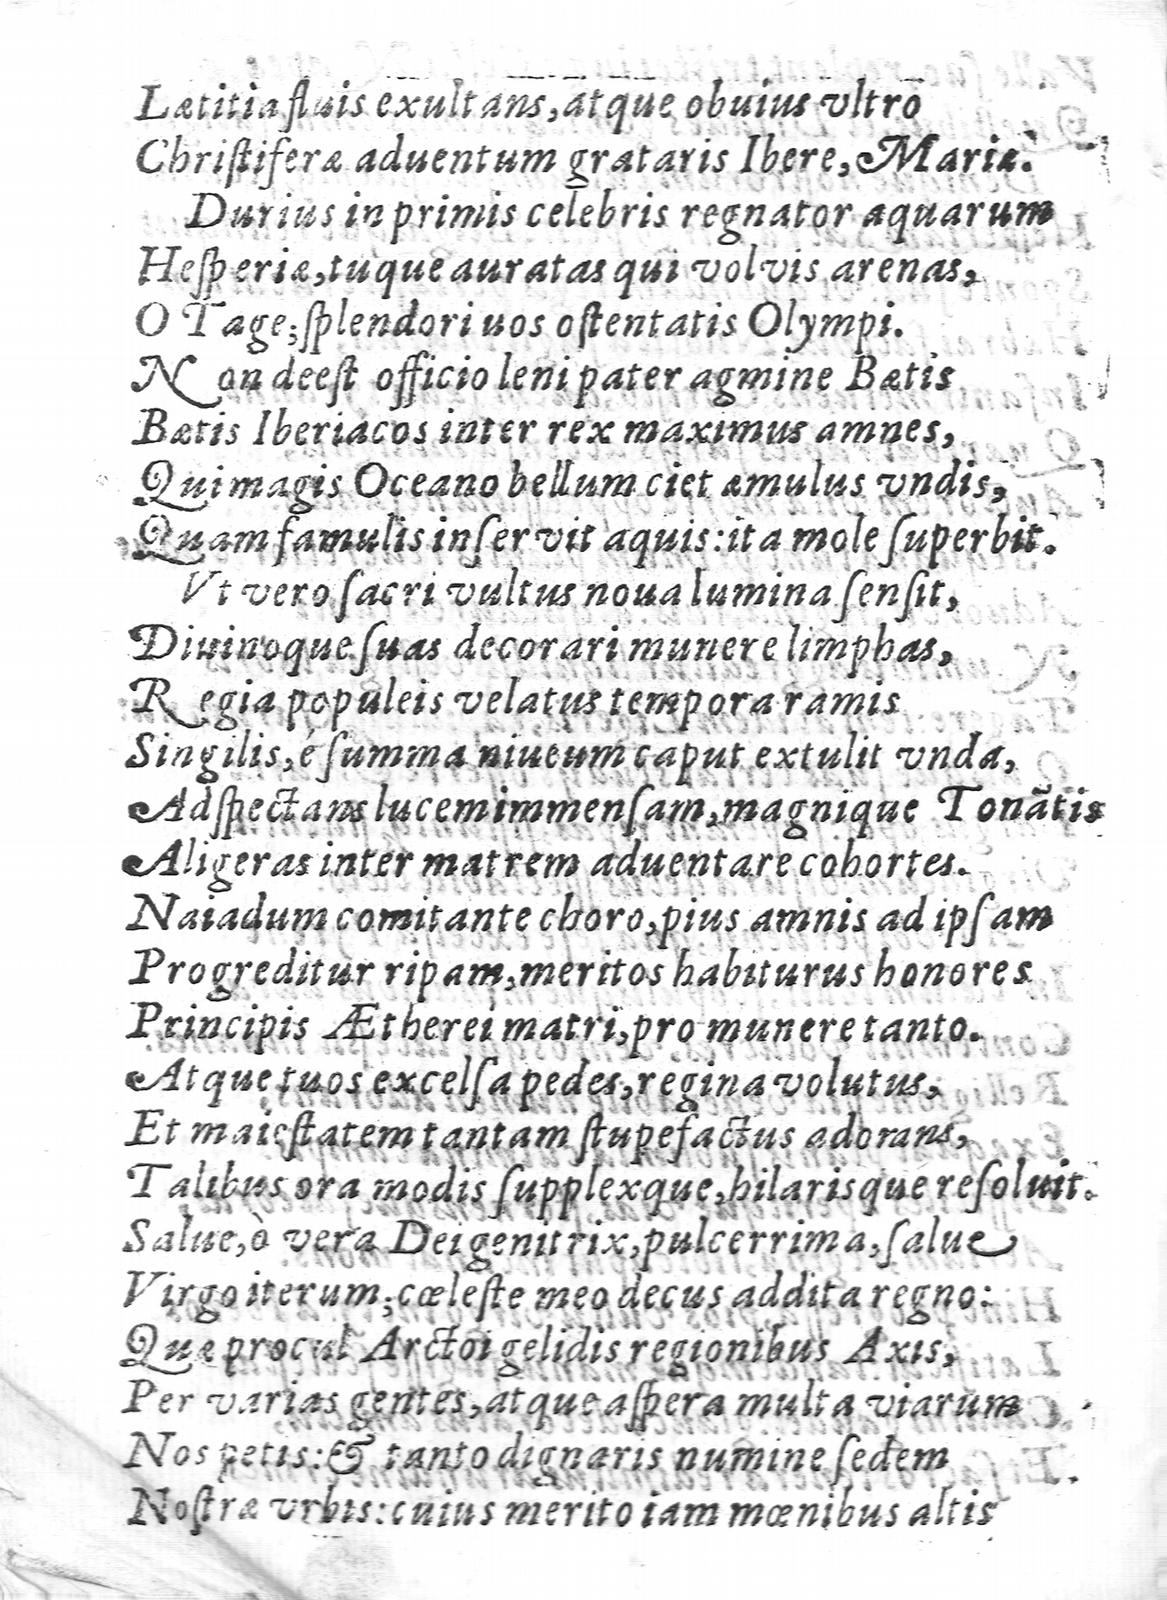 Lætitia fluis exultans, atque obuius vltrò
Chriſtiferæ aduentum grataris Ibere, Mariæ.
Durius in primis celebris regnator aquarum
Heſperiæ, tuque auratas qui volvis arenas,
O Tage; ſplendori uos oſtentatis Olympi.
Non deeſt officio leni pater agmine Bætis
Bætis Iberiacos inter rex maximus amnes,
Qui magis Oceano bellum ciet æmulus vndis,
Quam famulis inſervit aquis: ita mole ſuperbit.
Vt vero ſacri vultus noua lumina ſenſit,
Diuinoque ſuas decorari munere limphas,
Regia populeis velatus tempora ramis
Singilis, é ſumma niueum caput extulit vnda,
Adſpectans lucem immenſam, magnique Tonãtis
Aligeras inter matrem aduentare cohortes.
Naiadum comitante choro, pius amnis ad ipſam
Progreditur ripam, meritos habiturus honores
Principis Ætherei matri, pro munere tanto.
Atque tuos excelſa pedes, regina volutus,
Et maieſtatem tantam ſtupefactus adorans,
Talibus ora modis ſupplexque, hilarisque reſoluit.
Salue, ò vera Dei genitrix, pulcerrima, ſalue
Virgo iterum; cœleſte meo decus addita regno:
Quæ procul Arctoi gelidis regionibus Axis,
Per varias gentes, atque aſpera multa viarum
Nos petis: & tanto dignaris numine ſedem
Noſtræ vrbis: cuius merito iam mœnibus altis